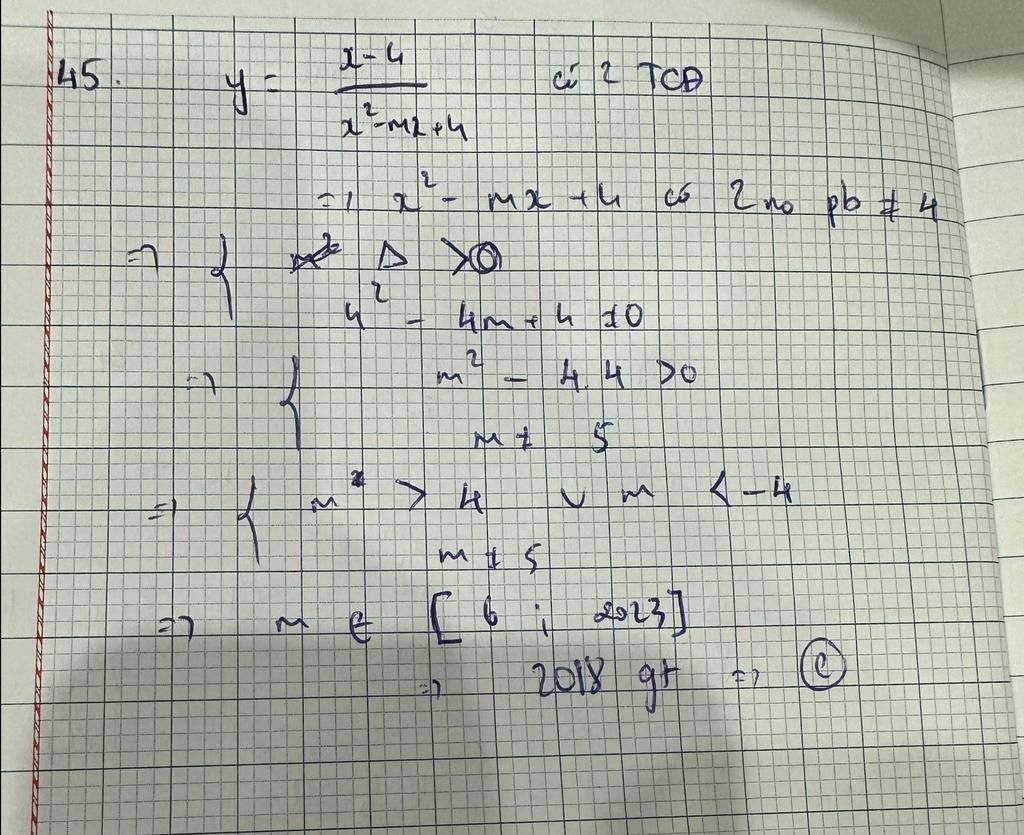 45. y = \frac{x-4}{x^2-mx+4} có 2 TCĐ
=> x^2 - mx + 4 có 2 no pb ≠ 4
=> { Δ > 0
4^2 - 4m + 4 ≠ 0
=> { m^2 - 4.4 > 0
m ≠ 5
=> { m > 4 v m < -4
m ≠ 5
=> m ∈ [6 ; 2023]
=> 2018 gt => C